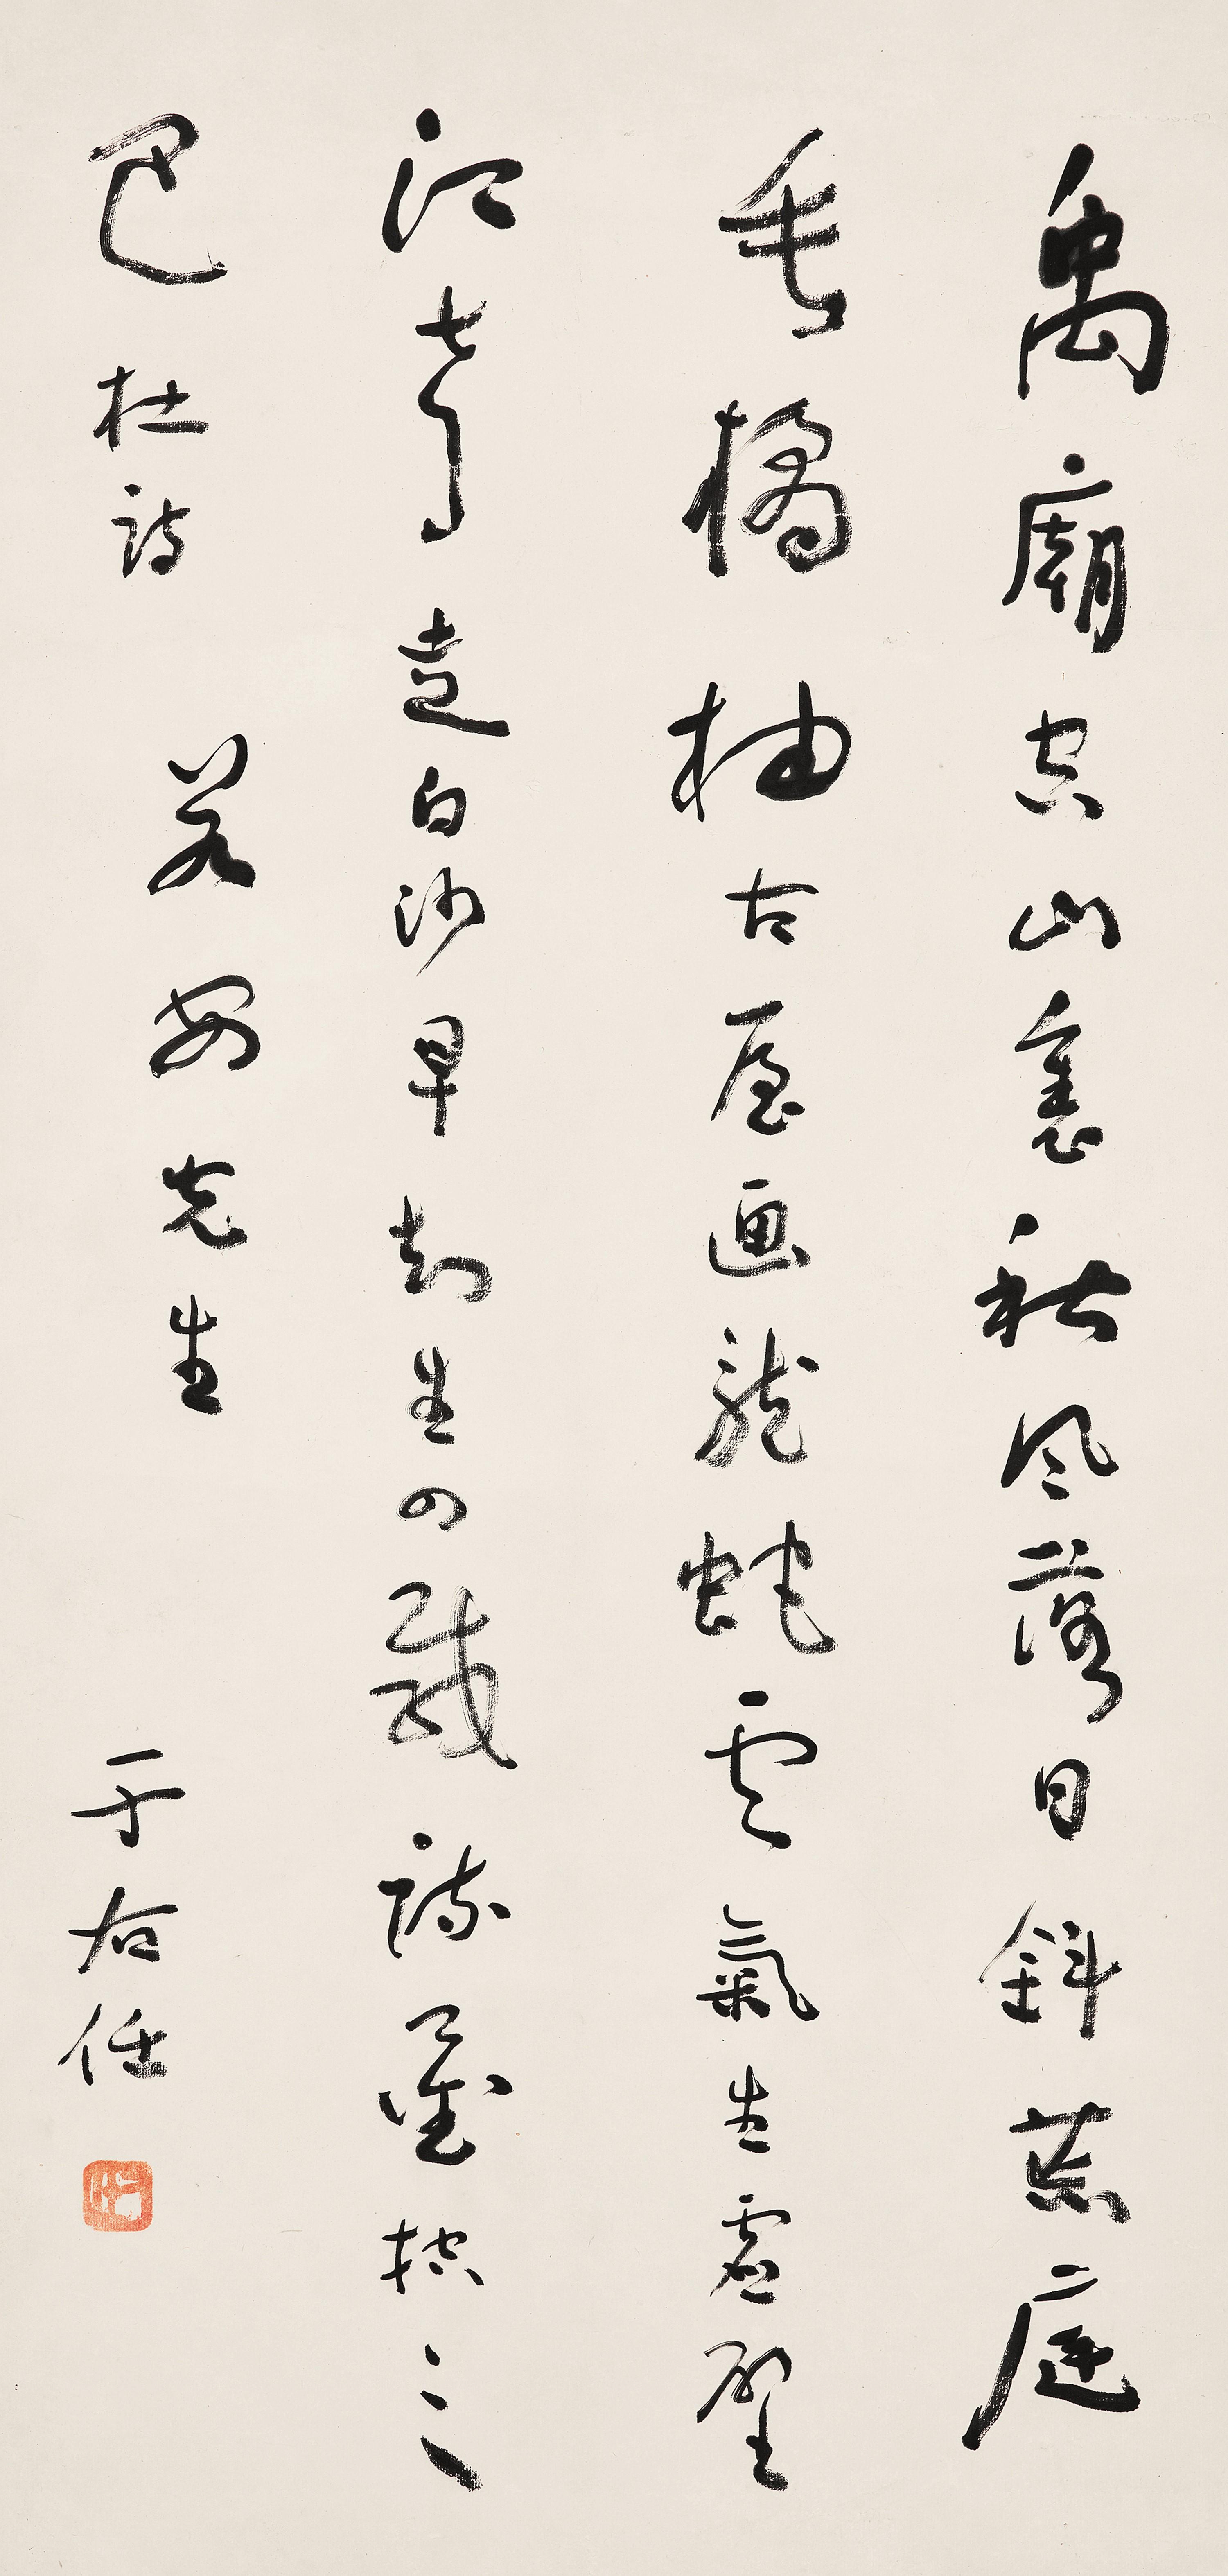 禹廟空山裏秋風落日斜荒庭
垂橘柚古屋画龍蛇雲氣生虛壁
江聲走白沙早知乘四載疏鑿控三
巴 杜詩
先生
于右任